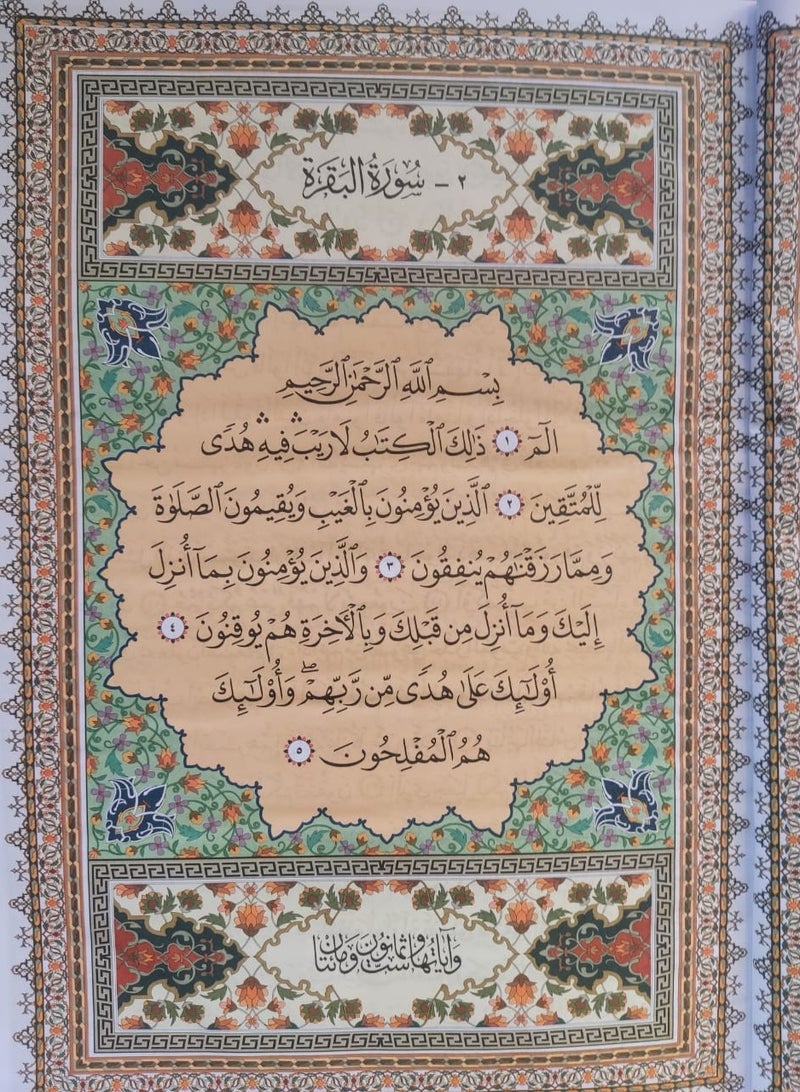 ٢ - سُورَةُ الْبَقَرَةِ
بِسْمِ ٱللَّهِ ٱلرَّحْمَٰنِ ٱلرَّحِيمِ
الٓمٓ ١ ذَٰلِكَ ٱلْكِتَٰبُ لَا رَيْبَ ۛ فِيهِ ۛ هُدًى
لِّلْمُتَّقِينَ ٢ ٱلَّذِينَ يُؤْمِنُونَ بِٱلْغَيْبِ وَيُقِيمُونَ ٱلصَّلَوٰةَ
وَمِمَّا رَزَقْنَٰهُمْ يُنفِقُونَ ٣ وَٱلَّذِينَ يُؤْمِنُونَ بِمَآ أُنزِلَ
إِلَيْكَ وَمَآ أُنزِلَ مِن قَبْلِكَ وَبِٱلْءَاخِرَةِ هُمْ يُوقِنُونَ ٤
أُو۟لَٰٓئِكَ عَلَىٰ هُدًى مِّن رَّبِّهِمْ ۖ وَأُو۟لَٰٓئِكَ
هُمُ ٱلْمُفْلِحُونَ ٥
وَآيَاتُهَا سِتٌّ وَثَمَانُونَ وَمِائَتَانِ